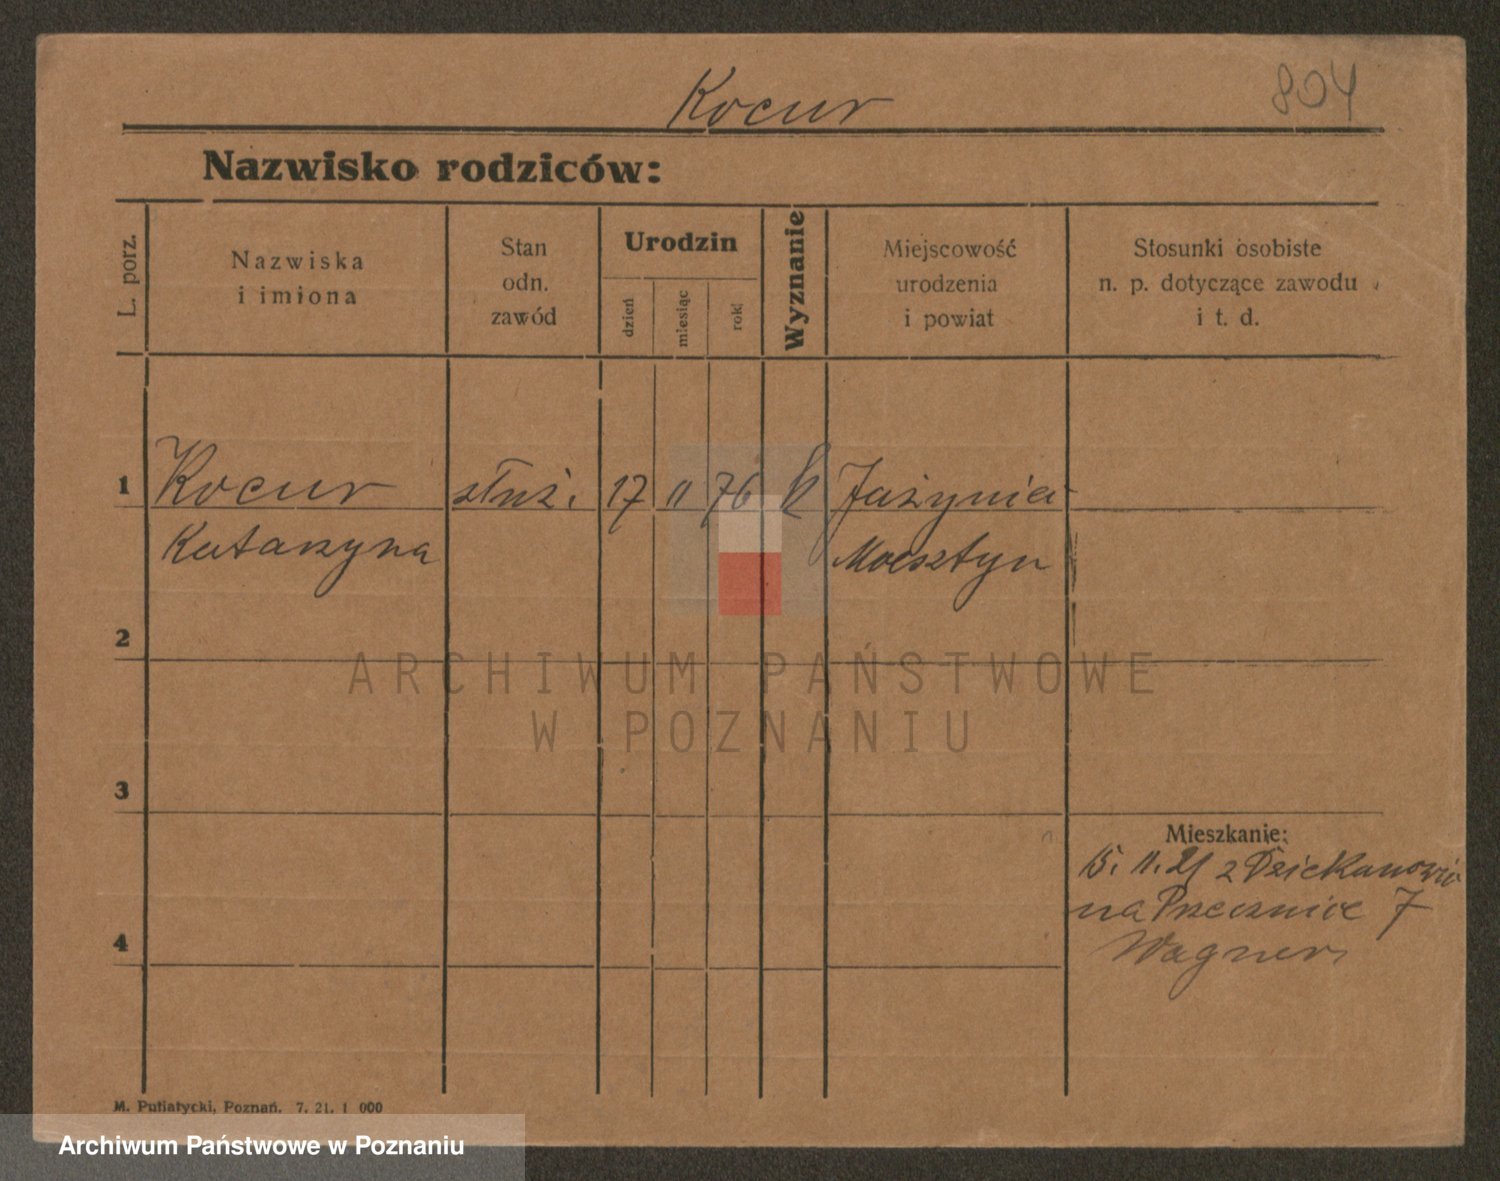 804
Kocur
Nazwisko rodziców:
L. porz.
Nazwiska
i imiona
Stan
odn.
zawód
Urodzin
dzień
miesiąc
rok
Wyznanie
Miejscowość
urodzenia
i powiat
Stosunki osobiste
n. p. dotyczące zawodu
i t. d.
1 Kocur służ. 17 11 76 k Jażynia
Katarzyna
2
ARCHIWUM PAŃSTWOWE
W POZNANIU
3
Mieszkanie:
15. 11. 21 z Dziekanowic
na Przecznice 7
4
Wagner
M. Putiatycki, Poznań. 7. 21. 1 000
Archiwum Państwowe w Poznaniu